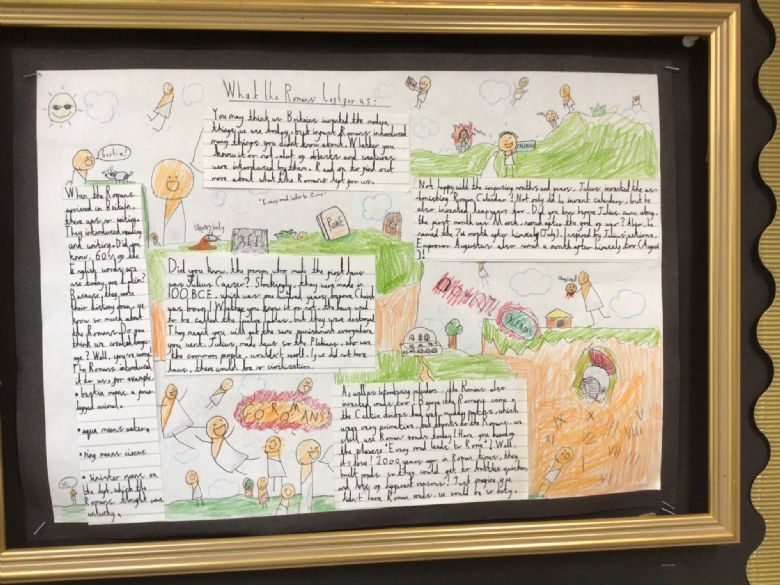 What the Romans left for us:
You may think us Britains invented the modern
things we use today, but infact Romans introduced
many things you didn't know about. Whether you
know it or not, alot of and
were introduced by them. Read on to find out
more about what the Romans left for us.
bestia!
When the Romans
arrived in Britain,
there was no writing.
They introduced reading
and writing. Did you
know, 60% of the
English words we
use today are Latin?
Because, they wrote
their history down, we
know so much about
the Romans. Do you
think we created langu-
age? Well, you're wrong.
The Romans introduced
it to us, for example:
• bestia means a four
legged animal.
• aqua means water.
• ring means circus
• sinister means on
the left, which the
Romans thought was
unlucky.
"Every road leads to Rome"
ROME
Did you know, the person who made the first laws
was Julius Caesar? Shockingly, they were made in
100 BCE, which was one hundred years before Christ
was born! Whether you knew it or not, the laws used
to be called the tables, but they were destroyed.
They meant you will get the same punishment everywhere
you went. Julius made laws so the Plebians, who were
the common people, wouldn't revolt. If we did not have
laws, there would be no civilization.
Not happy with the confusing months and years, Julius invented the as-
tonishing Roman Calendar! Not only did he invent calendars, but he
also invented leapyears too. Did you know before Julius came along,
the first month was March, named after the god of war? Also, he
named the 7th month after himself (July). Inspired by Julius' actions,
Emperor Augustus also named a month after himself too (August
)!
GO ROMANS
As well as introducing calendars, the Romans also
invented roads too. Before the Romans came,
the Celtic Britons had only muddy paths, which
were very primitive, but thanks to the Romans, we
still use Roman roads today! Have you heard of
the phrase "Every road leads to Rome"? Well,
it's true! 2000 years ago in Roman times, they
built roads so they could get to battles quicker
and for different reasons! Just imagine, if we
didn't have Roman roads, we would be so dirty.